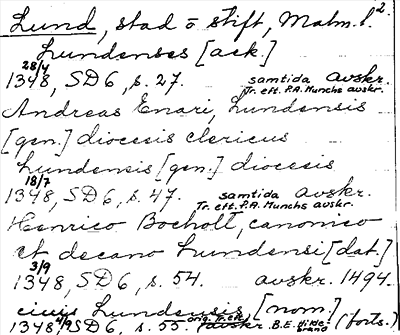 Lund, stad o stift, Malm. l. 2.
Lundenses [ack.]
28/4
1348, SD6, s. 27. samtida avskr.
Tr. eft. P.A. Munchs avskr.
Andreas Enari, Lundensis
[gen.] diocesis clericus
Lundensis [gen.] diocesis
18/7
1348, SD6, s. 47. samtida avskr.
Tr. eft. P.A. Munchs avskr.
Henrico Bocholt, canonico
et decano Lundensi [dat.]
3/9
1348, SD6, s. 54. avskr. 1494.
civis Lundensis [nom.]
1348 4/9 SD6, s. 55. orig. Tr. eft. avskr. B.E. (forts.)